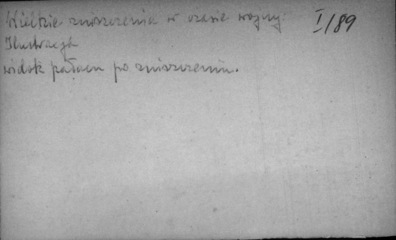 Wielkie zniszczenia w czasie wojny I/89
Ilustracja
widok pałacu po zniszczeniu.